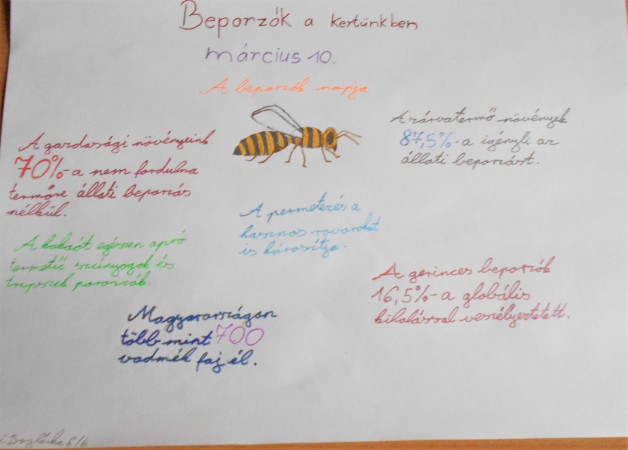 Beporzók a kertünkben
március 10.
A beporzók napja
A gazdasági növényeink
70%-a nem fordulna
termőre állati beporzás
nélkül.
A zárvatermő növények
87,5%-a igényli az
állati beporzást.
A permetezés a
hasznos rovarokat
is károsítja.
A kakaót egészen apró
termetű szúnyogok és
tripszek porozzák.
A gerinces beporzók
16,5%-a globális
kihalással veszélyeztetett.
Magyarországon
több mint 700
vadméh faj él.
6/b